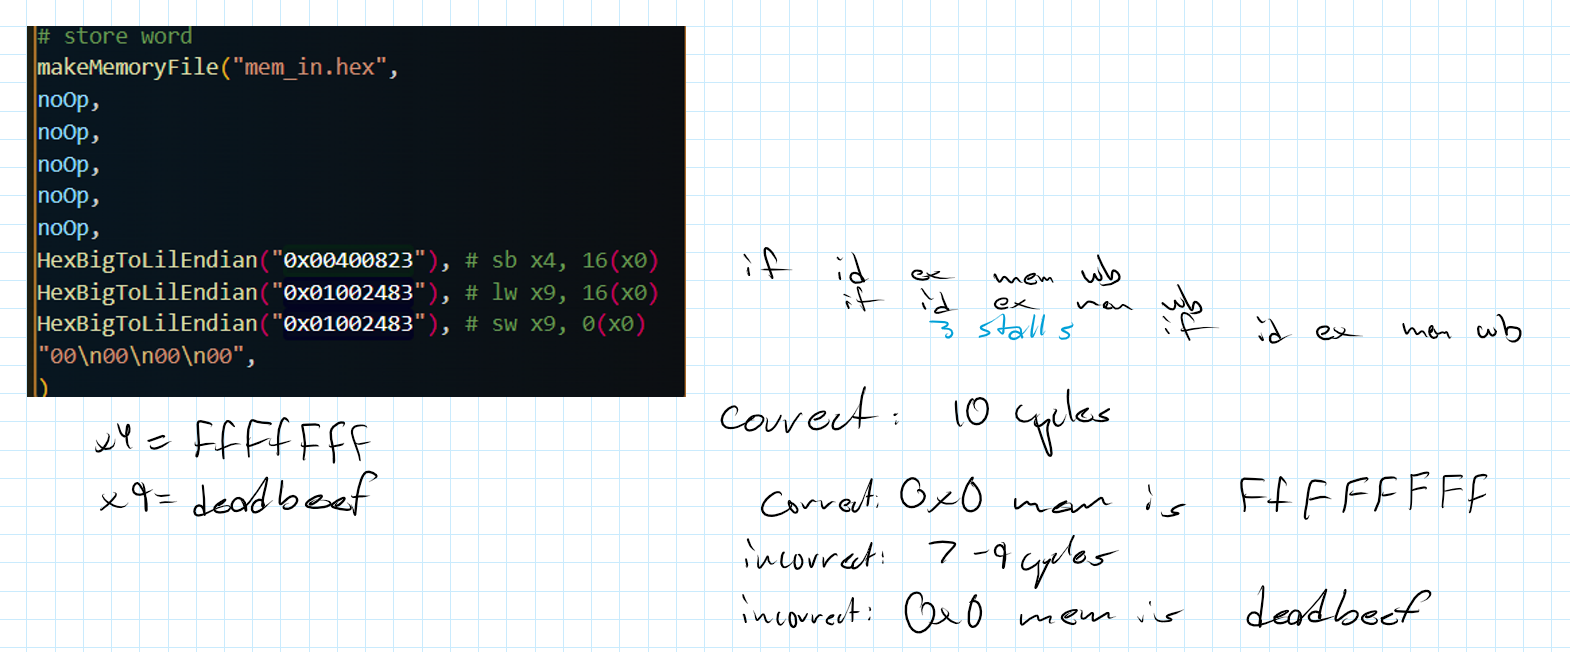 # store word
makeMemoryFile("mem_in.hex",
noOp,
noOp,
noOp,
noOp,
noOp,
HexBigToLilEndian("0x00400823"), # sb x4, 16(x0)
HexBigToLilEndian("0x01002483"), # lw x9, 16(x0)
HexBigToLilEndian("0x01002483"), # sw x9, 0(x0)
"00\n00\n00\n00",
)
x4 = FfFfFff
x9= deadbeef
if id ex mem wb
if id ex mem wb
3 stalls if id ex mem wb
correct: 10 cycles
correct: 0x0 mem is FfFFFFFF
incorrect: 7-9 cycles
incorrect: 0x0 mem is deadbeef